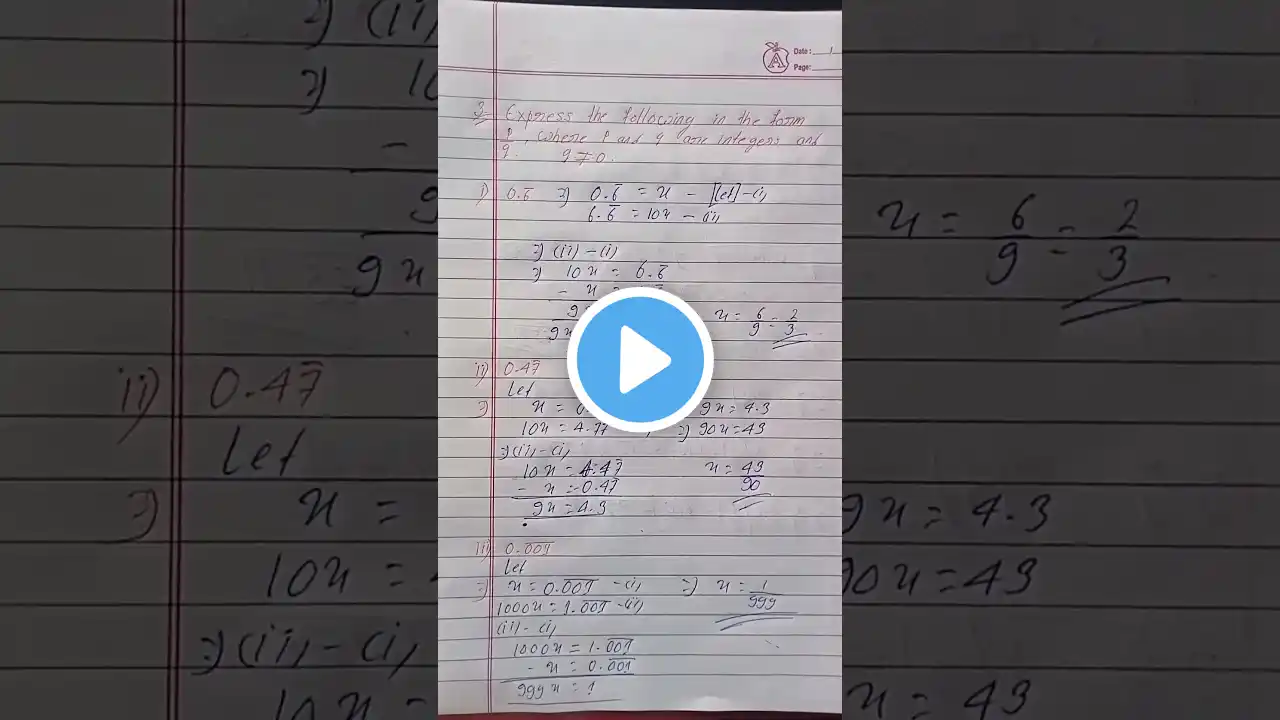 Date: 1
Page:
3 Express the following in the form
p/q, where p and q are integers and
q≠0.
i) 0.6̅ ⇒ 0.6̅ = x - [let] -(i)
6.6̅ = 10x - (ii)
⇒ (ii) - (i)
⇒ 10x = 6.6̅
- x =
9x
x = 6/9 = 2/3
ii) 0.47̅
let
⇒ x = 0. 9x = 4.3
10x = 4.77 ⇒ 90x = 43
⇒ (ii) - (i)
10x = 4.47̅ x = 43/90
- x = 0.47̅
9x = 4.3
iii) 0.001̅
let
⇒ x = 0.001̅ -(i) ⇒ x = 1/999
1000x = 1.001̅ -(ii)
(ii) - (i)
1000x = 1.001̅
- x = 0.001̅
999x = 1